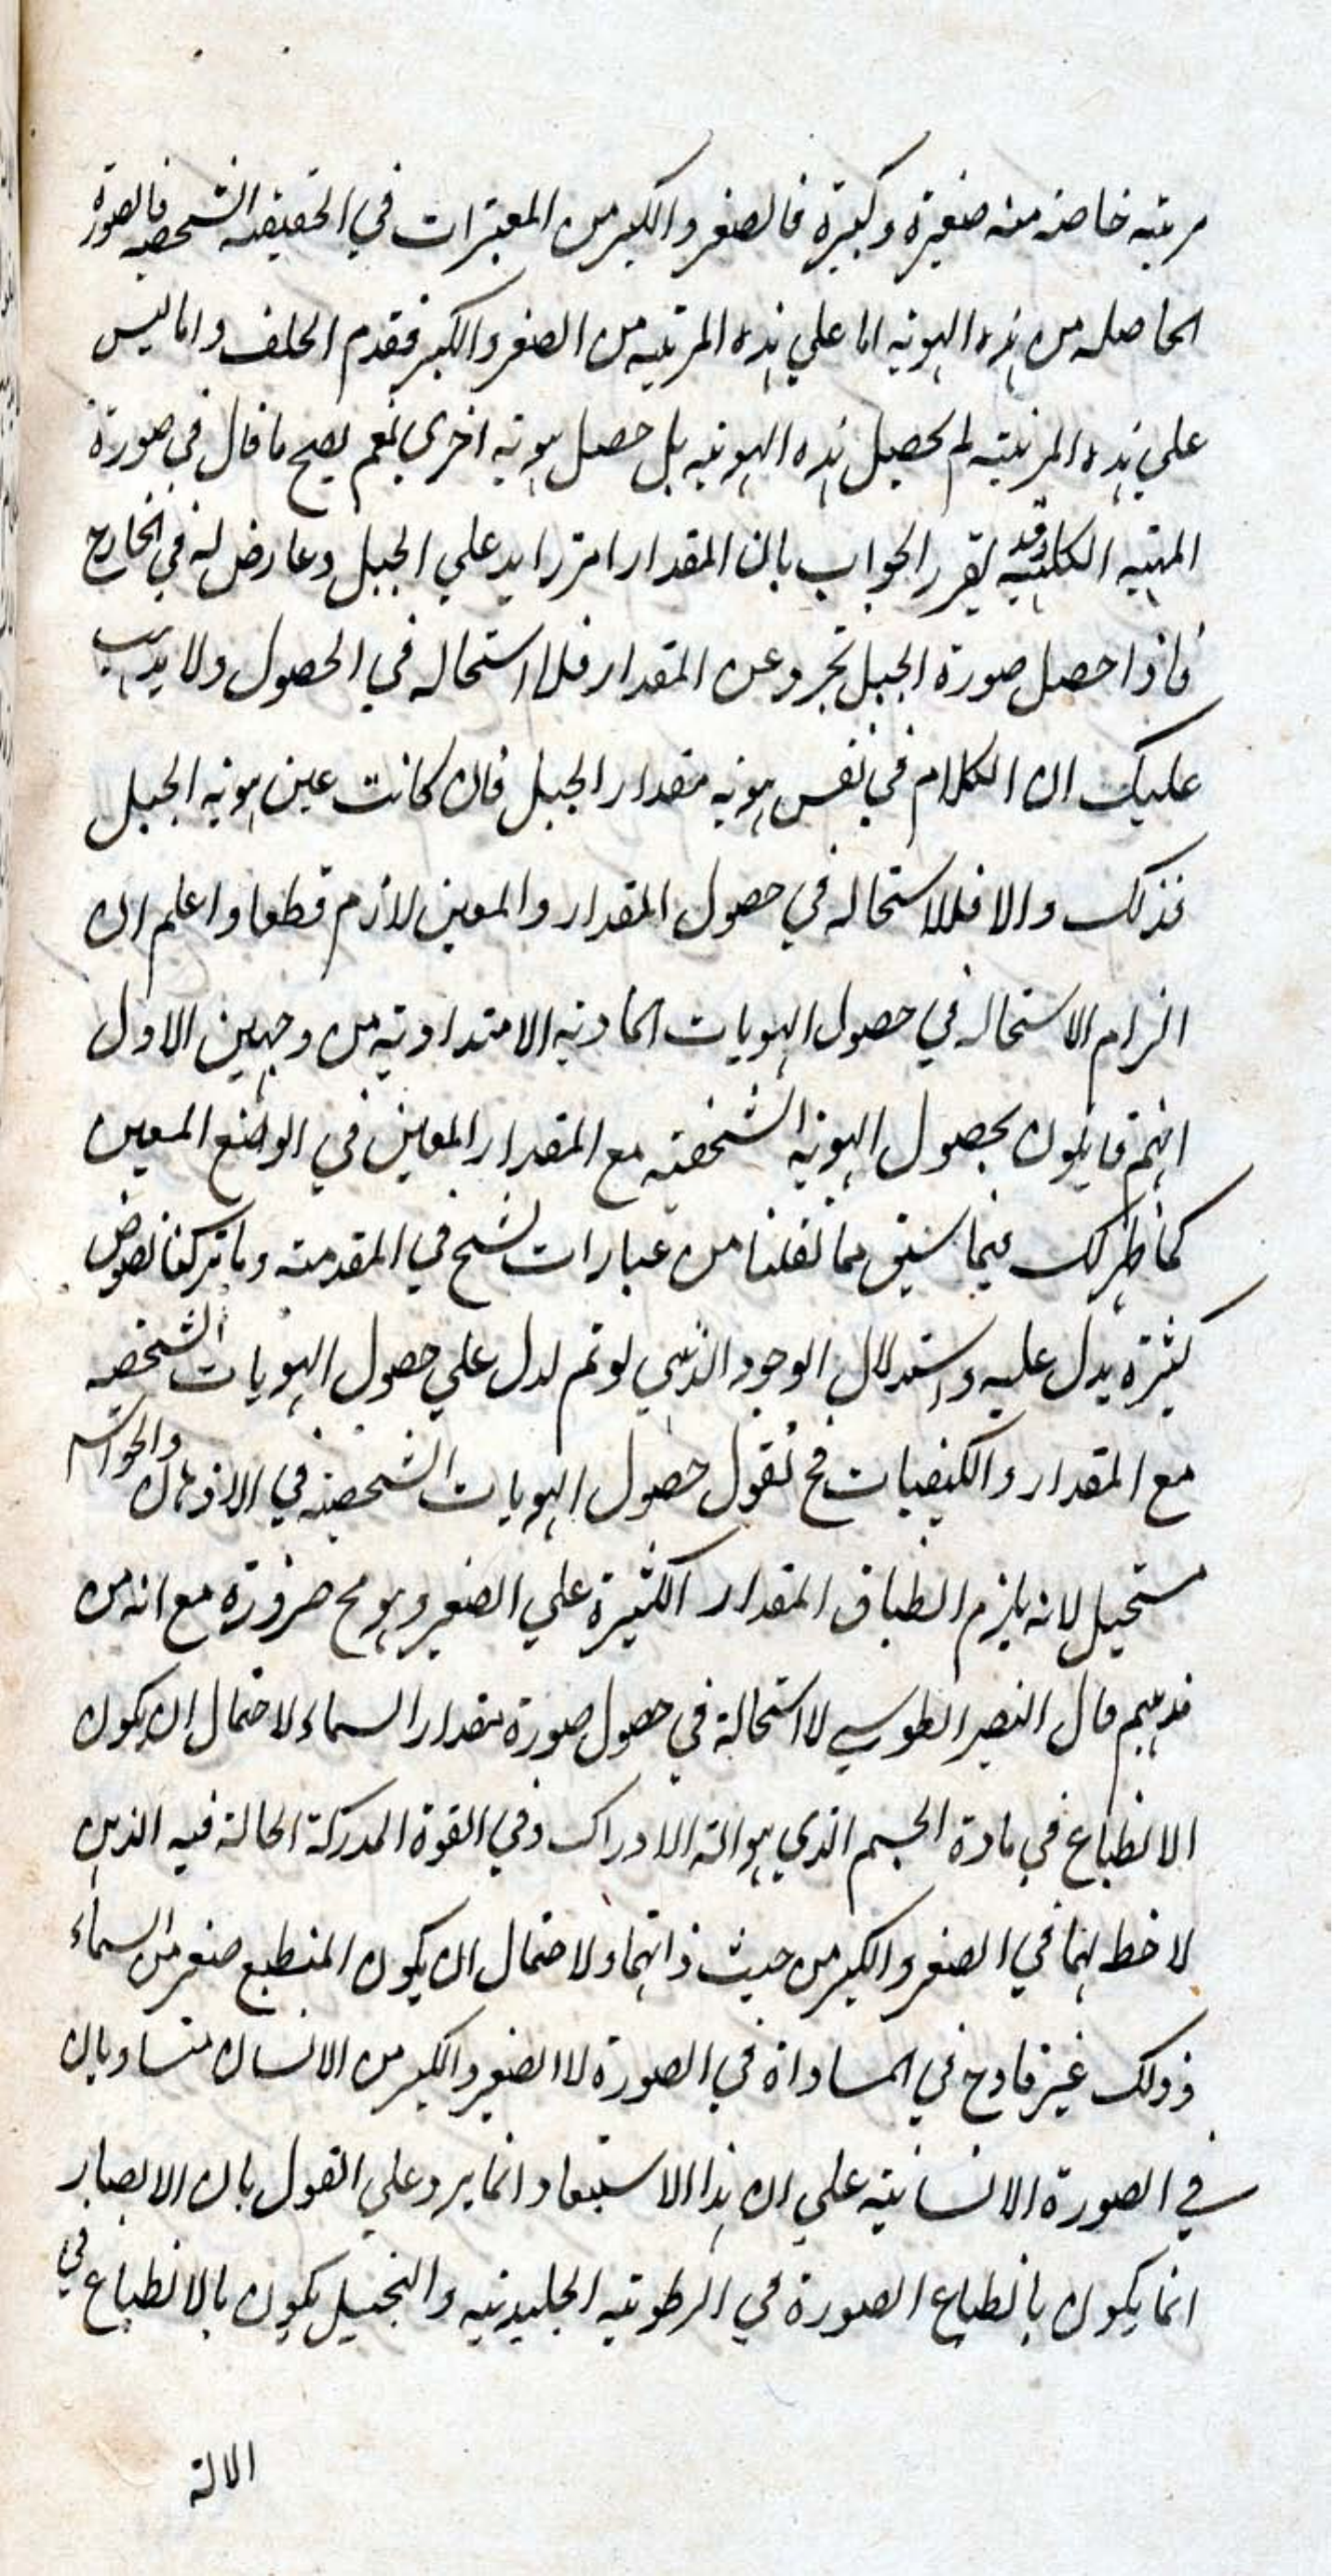 مرتبه خاصه منه صغيرة وكبيرة فالصغر والكبر من المعتبرات في الحقيقه الشخصيه فالصورة
الحاصله من هذه الهويه اما علي هذه المرتبه من الصغر والكبر فقدم الخلف واما ليس
علي هذه المرتبته لم تحصيل هذه الهويه بل حصل هويه اخري نعم يصح ما قال في صورة
المهيه الكليه وقد يقرر الجواب بان المقدار امر زايد علي الجبل وعارض له في الخارج
فاذا حصل صورة الجبل تجرد عن المقدار فلا استحاله في الحصول ولا يذهب
عليك ان الكلام في نفس هويه مقدار الجبل فان كانت عين هويه الجبل
فذلك والا فللاستحاله في حصول المقدار والمعين لازم قطعا واعلم ان
الزام الاستحاله في حصول الهويات المادية الامتدادية من وجهين الاول
انهم قايلون بحصول الهويه الشخصيه مع المقدار المعين في الوضع المعين
كما ظهر لك فيما سبق مما نقلنا من عبارات الشيخ في المقدمته وما تركنا نصوص
كثيرة يدل عليه واستدلال الوجود الذهني لو تم لدل علي حصول الهويات الشخصيه
مع المقدار والكيفيات فح نقول حصول الهويات الشخصيه في الاذهان والحواس
مستحيل لانه يلزم انطباق المقدار الكثيرة علي الصغير وهو مح ضرورة مع انه من
مذهبهم قال النصير الطوسي لا استحالة في حصول صورة مقدار السماء لاحتمال ان يكون
الانطباع في مادة الجسم الذي هو الة الادراك وفي القوة المدركة الحالة فيه الذين
لا خط لهما في الصغر والكبر من حيث ذاتهما ولاحتمال ان يكون المنطبع صغر من السماء
وذلك غير قادح في المساواة في الصورة لا الصغير والكبير من الانسان متساويان
في الصورة الانسانيته علي ان هذا الاستبعاد انما يرد علي القول بان الابصار
انما يكون بانطباع الصورة في الرطوبته الجليديه والتخيل يكون بالانطباع في
الالة